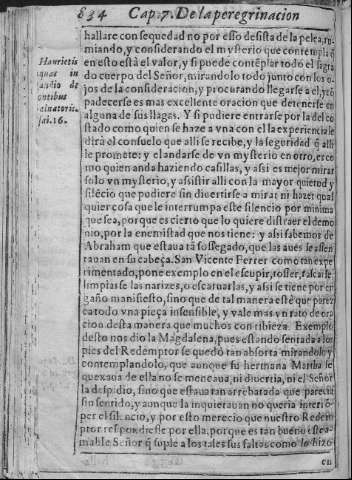 834 Cap. 7. De la peregrinacion
hallare con sequedad no por esso desista de la pelea, ru
miando, y considerando el mysterio que contemplò q̃
en esto està el valor, y si puede contẽplar todo el sagra
do cuerpo del Señor, mirandolo todo junto con los o
jos de la consideracion, y procurando llegarse a el, y cõ
padecerse es mas excellente oracion que detenerse en
alguna de sus llagas. Y si pudiere entrarse por la del co
stado como quien se haze a vna con el la experiencia le
dirà el consuelo que alli se recibe, y la seguridad q̃ alli
le promete: y el andarse de vn mysterio en otro, es co
mo quien anda haziendo casillas, y assi es mejor mirar
solo vn mysterio, y assistir alli con la mayor quietud y
silẽcio que pudiere sin diuertirse a mirar ni hazer qual
quier cosa que le interrumpa este silencio por minima
que sea, porque es cierto que lo quiere distraer el demo
nio, por la enemistad que nos tiene: y assi sabemos de
Abraham que estaua tã sossegado, que las aues se assen
tauan en su cabeça. San Vicente Ferrer como tan expe
rimentado, pone exemplo en el escupir, tosser,
limpiarse las narizes, o escaruarlas, y assi se tiene por en
gaño manifiesto, sino que de tal manera estè que parez
ca todo vna pieça insensible, y vale mas vn rato de ora
cion desta manera que muchos con tibieza. Exemplo
desto nos dio la Magdalena, pues estando sentada a los
pies del Redemptor se quedò tan absorta mirandolo y
contemplandolo, que aunque su hermana Martha se
quexaua de ella no se meneaua, ni diuertia, ni el Señor
la despidio, sino que estaua tan arrebatada que parecia
sin sentido, y aunque la inquietauan no queria interrõ
per el silencio, y por esto merecio que nuestro Redem
ptor respondiesse por ella, porque es tan bueno este a
mable Señor q̃ suple a los tales sus faltas como lo hizo
en
Haurietis
quas in
gaudio de
fontibus
saluatoris.
Isai. 16.